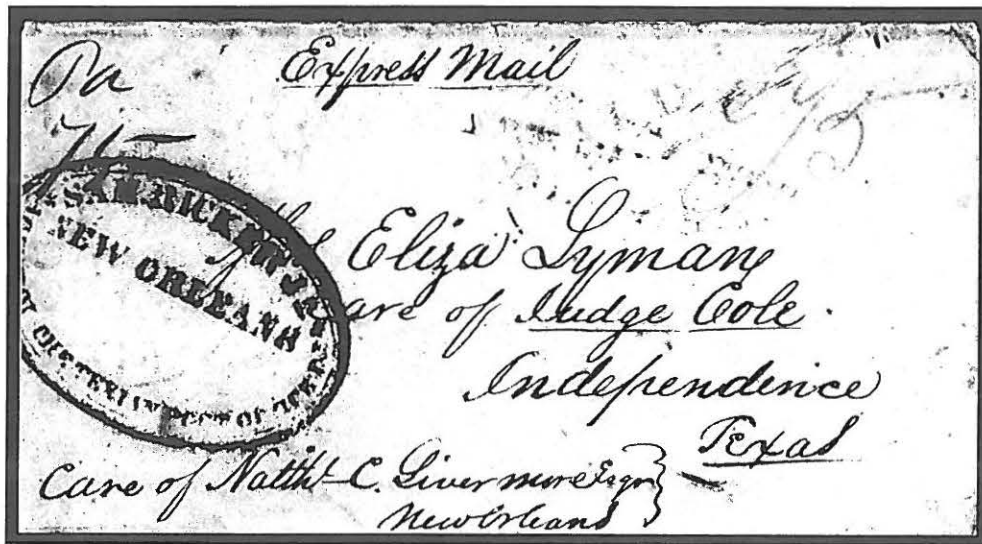 Express Mail
SAM RICKER JR
NEW ORLEANS
Eliza Lyman
Care of Judge Cole.
Independence
Texas
Care of Nathl C. Livermore Esqr
New Orleans